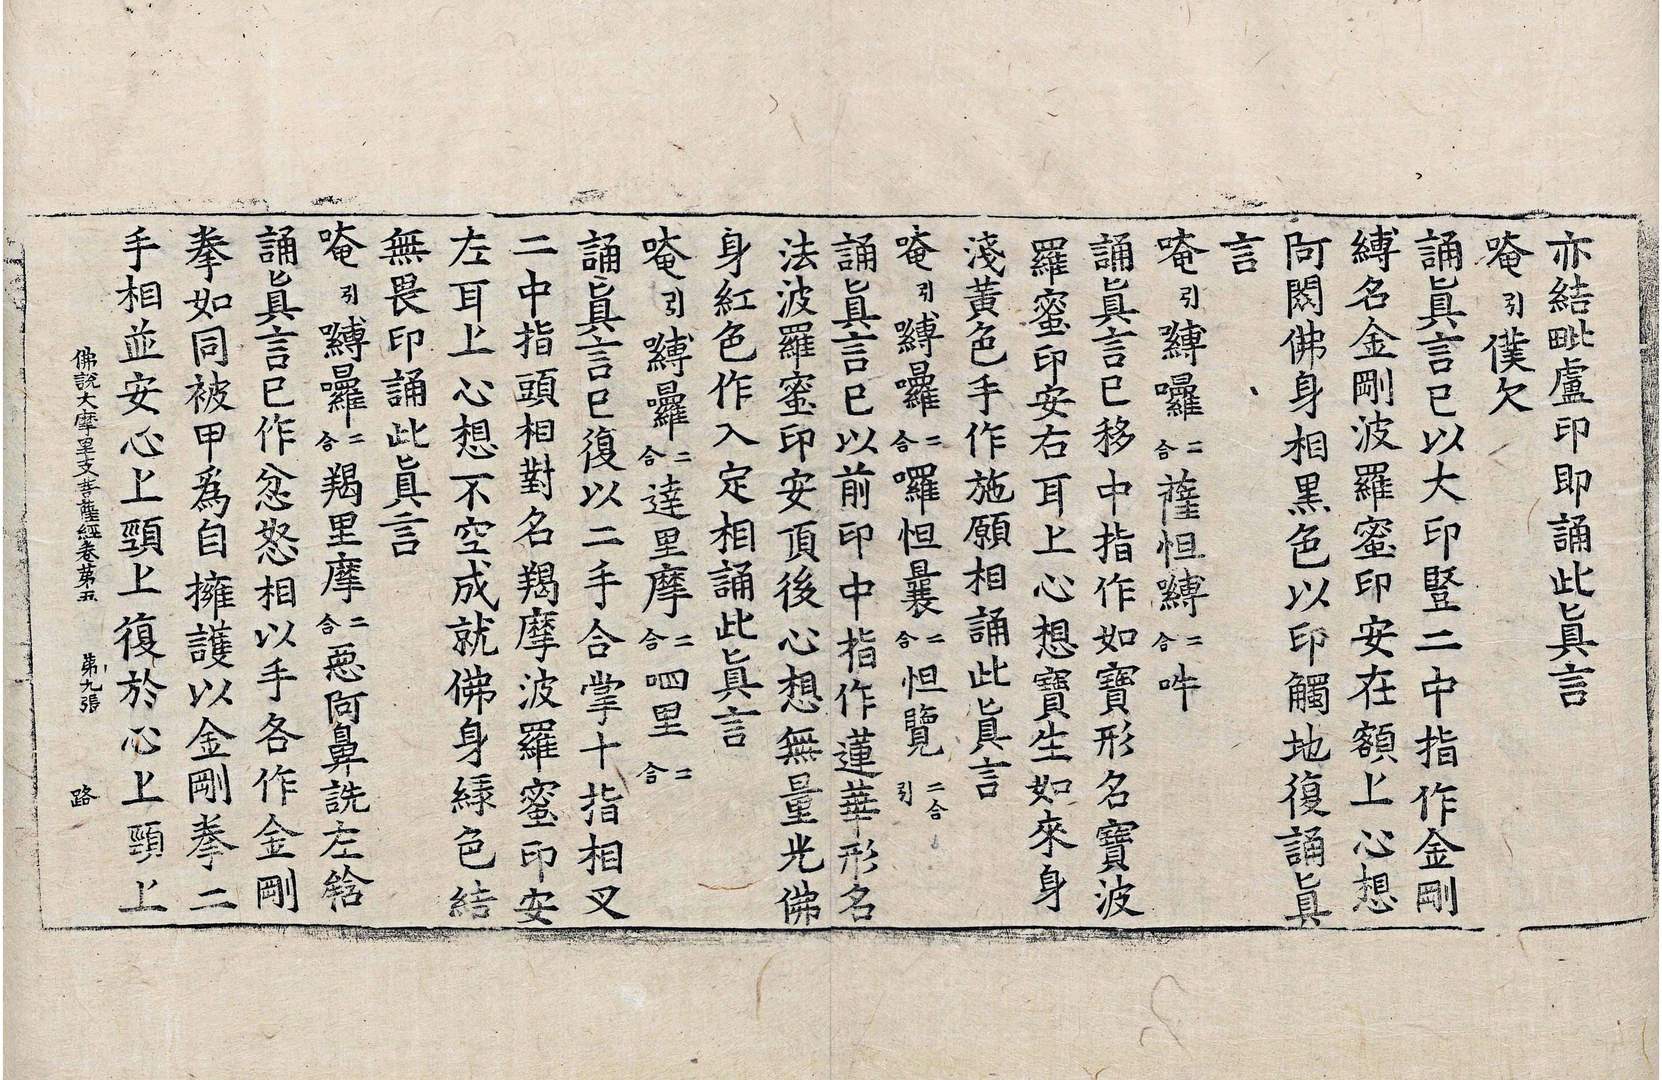 亦結毗盧印即誦此眞言
唵引僕欠
誦眞言已以大印豎二中指作金剛
縛名金剛波羅蜜印安在額上心想
阿閦佛身相黑色以印觸地復誦眞
言
唵引嚩囉二合薩怛嚩二合吽
誦眞言已移中指作如寶形名寶波
羅蜜印安右耳上心想寶生如來身
淺黃色手作施願相誦此眞言
唵引嚩囉二合囉怛曩二合怛覽二合引
誦眞言已以前印中指作蓮華形名
法波羅蜜印安頂後心想無量光佛
身紅色作入定相誦此眞言
唵引嚩囉二合達里摩二合呬里二合
誦眞言已復以二手合掌十指相叉
二中指頭相對名羯摩波羅蜜印安
左耳上心想不空成就佛身綠色結
無畏印誦此眞言
唵引嚩囉二合羯里摩二合惡阿鼻詵左𤚥
誦眞言已作忿怒相以手各作金剛
拳如同被甲爲自擁護以金剛拳二
手相並安心上頸上復於心上頸上
佛說大摩里支菩薩經卷第五 第九張 路